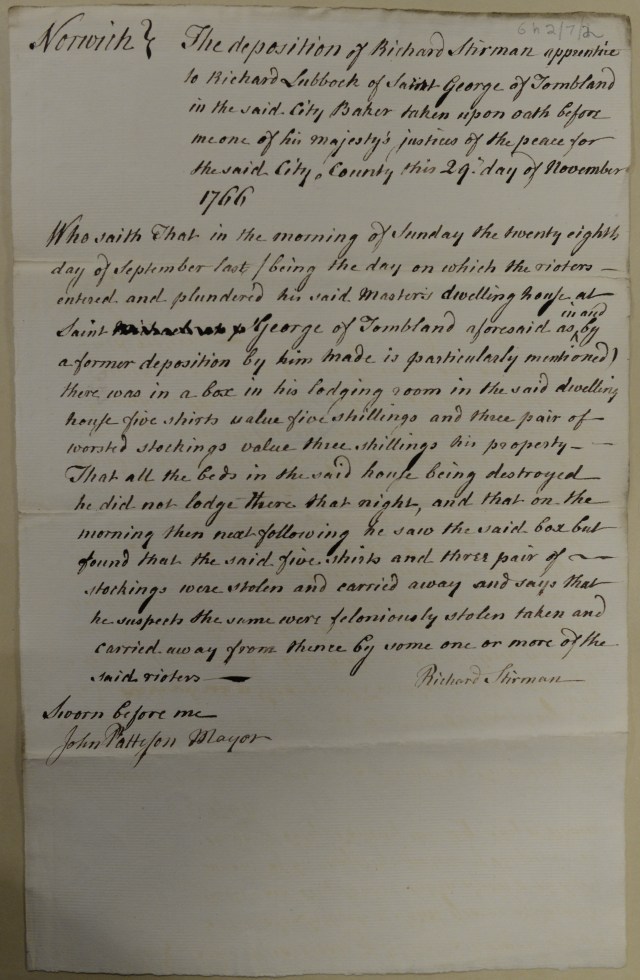 6h 2/7/2
Norwich} The deposition of Richard Stirman apprentice
to Richard Lubbock of Saint George of Tombland
in the said City Baker taken upon oath before
me one of his majesty's justices of the peace for
the said City & County this 29th day of November
1766
Who saith That in the morning of Sunday the twenty eighth
day of September last /being the day on which the rioters
entered and plundered his said Master's dwelling house at
Saint George of Tombland aforesaid as in and by
a former deposition by him made is particularly mentioned/
there was in a box in his lodging room in the said dwelling
house five shirts value five shillings and three pair of
worsted stockings value three shillings his property
That all the beds in the said house being destroyed
he did not lodge there that night, and that on the
morning then next following he saw the said box but
found that the said five shirts and three pair of
stockings were stolen and carried away and says that
he suspects the same were feloniously stolen taken and
carried away from thence by some one or more of the
said rioters
Richard Stirman
Sworn before me
John Patteson Mayor